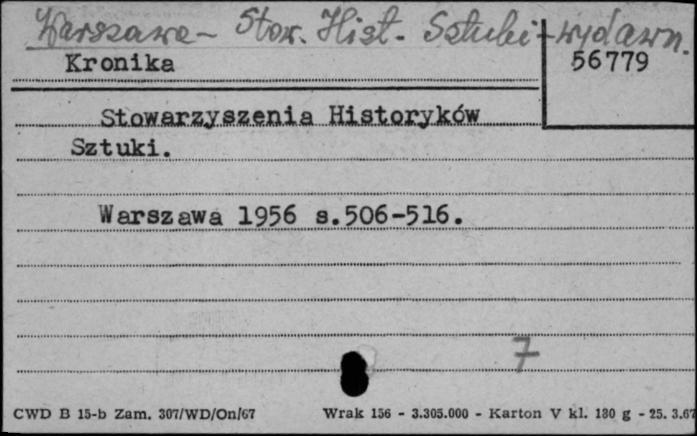 Warszawa - Stow. Hist. Sztuki - wydawn.
Kronika
56779
Stowarzyszenia Historyków
Sztuki.
Warszawa 1956 s.506-516.
7
CWD B 15-b Zam. 307/WD/On/67 Wrak 156 - 3.305.000 - Karton V kl. 180 g - 25. 3.67